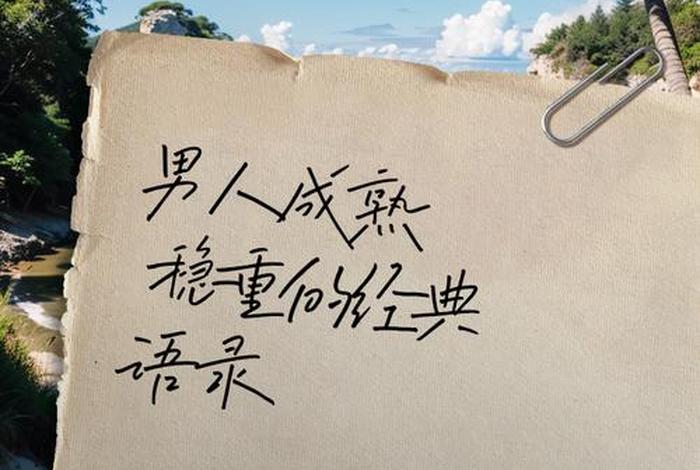 男人成熟
稳重的经典
语录